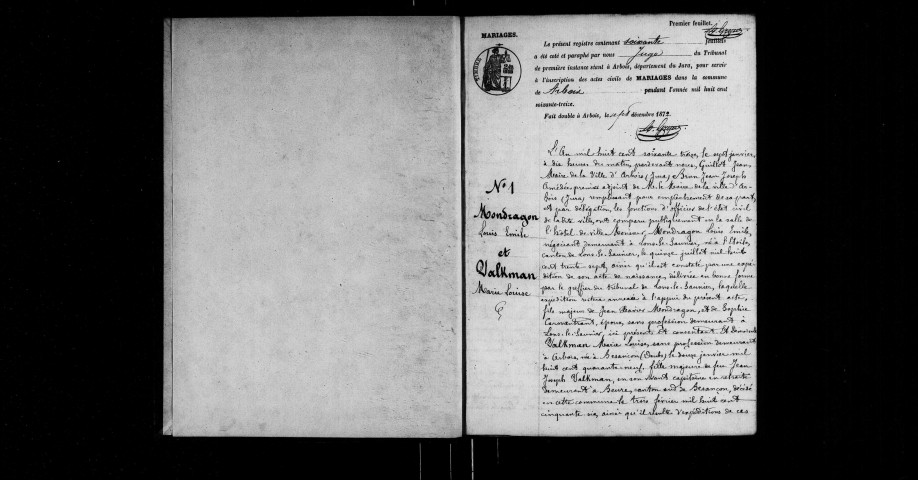 Premier feuillet.
MARIAGES.
Le présent registre contenant soixante feuillets
a été coté et paraphé par nous Juge du Tribunal
de première instance séant à Arbois, département du Jura, pour servir
à l'inscription des actes civils de MARIAGES dans la commune
de Arbois pendant l'année mil huit cent
soixante-treize.
Fait double à Arbois, le sept décembre 1872.
L'An mil huit cent soixante treize, le sept janvier,
à dix heures du matin, pardevant nous, Guillot Jean
Maire de la Ville d'Arbois (Jura) Brun Jean Joseph
Amédée premier adjoint de Mr. le Maire de la ville d'Ar-
bois (Jura) remplissant pour empêchement de sa part,
et par délégation, les fonctions d'officier de l'état civil
de la dite ville, ont comparu publiquement en la salle de
l'hôtel de ville Monsieur, Mondragon Louis Emile,
négociant demeurant à Lons-le-Saunier, né à l'Etoile,
canton de Lons-le-Saunier, le quinze juillet mil huit
cent trente sept, ainsi qu'il est constaté par une expé-
dition de son acte de naissance, délivrée en bonne forme
par le greffier du tribunal de Lons-le-Saunier, laquelle
expédition restera annexée à l'appui du présent acte,
fils majeur de Jean Xavier Mondragon, et de Sophie
époux, sans profession demeurant à
Lons-le-Saunier, ici présents et consentant Et Demoiselle
Valkman Marie Louise, sans profession demeurant
à Arbois, née à Besançon (Doubs) le douze janvier mil
huit cent quarante neuf, fille majeure de feu Jean
Joseph Valkman, en son vivant capitaine en retraite
demeurant à Beure, canton sud de Besançon, décédé
en cette commune le trois février mil huit cent
cinquante six, ainsi qu'il résulte d'expéditions de ces
N° 1
Mondragon
Louis Emile
et
Valkman
Marie Louise